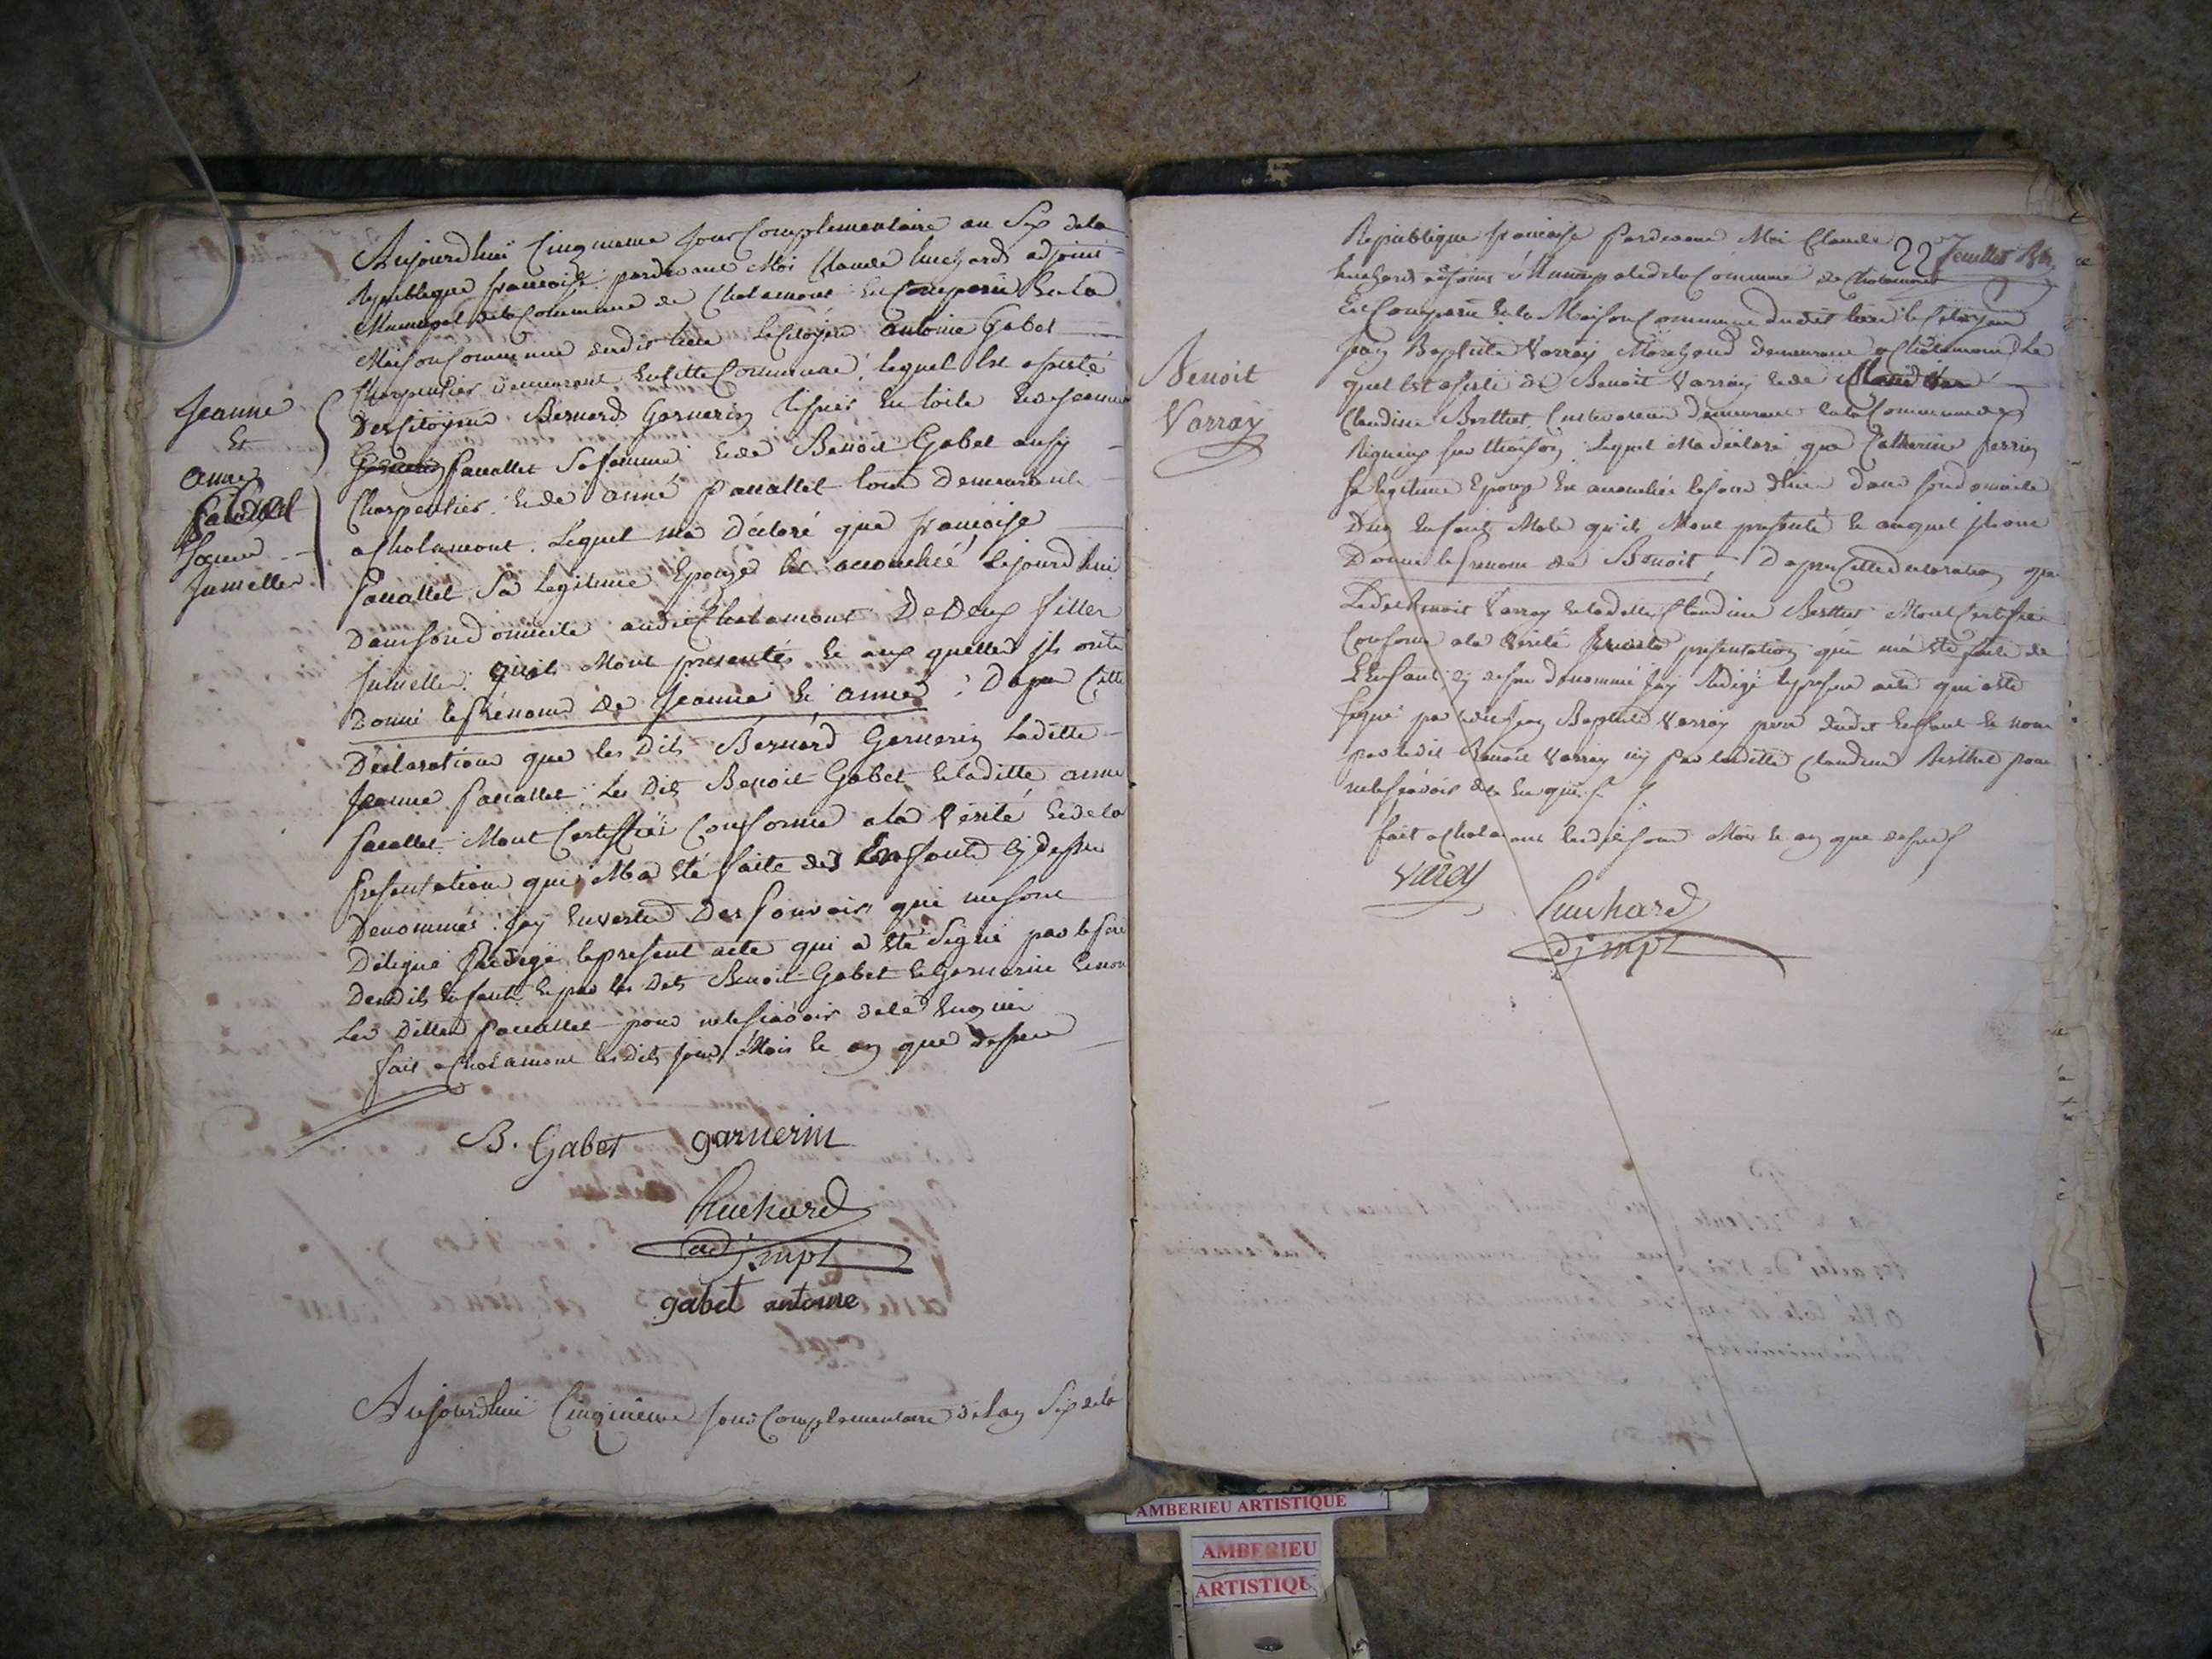 Aujourdhui Cinquieme Jour Complementaire an Six dela
Republique francaise pardevant Moi Claude Luchard adjoint
Municipal dela Commune de Chalamont Est Comparu En la
Maison Commune dudit lieu Le Citoyen antoine Gabet
Charpentier demeurant En Cette Commune, lequel Est assisté
Des Citoyens Bernard Garnerin tissier En toile Et de Jeanne
Pacallet Sa femme Et de Benoit Gabet aussy
Charpentier Et de anne Pacallet tous Demeurant
a Chalamont. Lequel ma Déclaré que francoise
Pacallet Sa Legitime Epouze Est accouchée Cejourdhui
Dans son Domicile audit Chalamont De Deux filles
Jumelles quils Mont presentés Et aux quelles ils onts
Donné les Prénoms de Jeanne Et anne. Dapres Cette
Déclaration que les Dits Bernard Garnerin Laditte
Jeanne Pacallet, Les Dits Benoit Gabet Et laditte anne
Pacallet Mont Certiffiér Conforme a la Vérité Et de la
Presentation qui Ma Eté faite des Enfants Cy dessus
Denommés. Jay En vertu Des Pouvoirs qui me sont
Délégué Rédigé le present acte qui a Eté Signé par le pere
Desdits Enfants Et par les Dits Benoit Gabet Et Garnerin Et non
Les Dittes Pacallet pour ne le sçavoir dela Enquis
fait a Chalamont les dits Jour Mois Et an que dessus
Jeanne
Et
anne
Sœurs
Jumelles
B. Gabet garnerin
Luchard
adj. mpl
gabet antoine
Aujourdhui Cinquième Jour Complementaire de Lan Six de la
22
Republique francaise Pardevant Moi Claude
Luchard adjoint Municipal de la Commune de Chalamont
Est Comparu En la Maison Commune dudit lieu le Citoyen
Jean Baptiste Varray Marchand demeurant a Chalamont Le
quel Est assisté de Benoit Varray Et de
Claudine Berthet, Cultivateur demeurant En la Commune de
Rignieux Lequel Ma déclaré que Catherine Perrin
Sa legitime Epouze Est accouchée le jour dhier dans son domicile
Dun Enfant Male quils Mont presenté Et auquel ils ont
Donné le Prenom de Benoit, Dapres Cette declaration que
Ledit Benoit Varray Et laditte Claudine Berthet Mont Certifié
Conforme a la Vérité presentation qui ma Eté faite de
LEnfant Cy dessus dénommé Jay Rédigé le present acte qui a Eté
Signé par ledit Jean Baptiste Varray pere dudit Enfant Et non
par ledit Benoit Varray ny par laditte Claudine Berthet pour
ne le sçavoir de ce Enquis
fait a Chalamont lesdits Jour Mois Et an que dessus
Benoit
Varray
Varay
Luchard
adj mpl
AMBERIEU ARTISTIQUE
AMBERIEU
ARTISTIQU